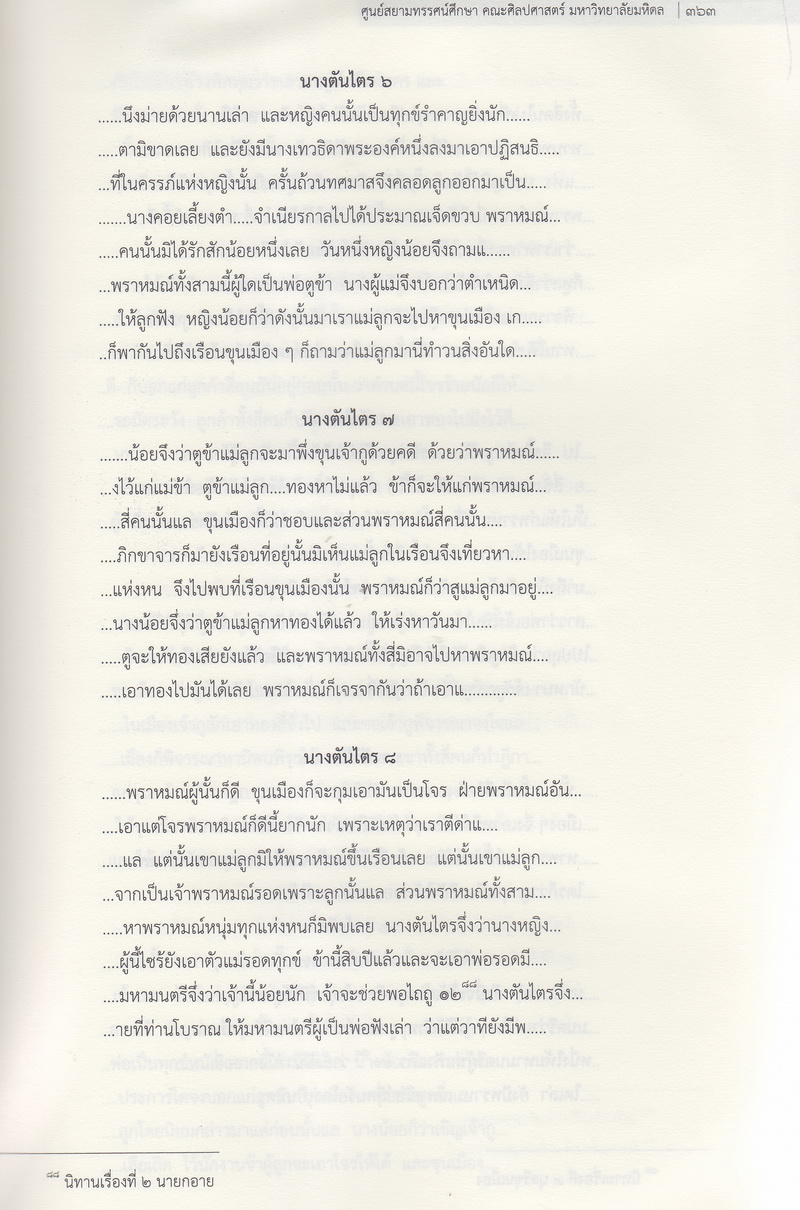 ศูนย์สยามทรรศน์ศึกษา คณะศิลปศาสตร์ มหาวิทยาลัยมหิดล | ๓๖๓
นางตันไตร ๖
......นึงม่ายด้วยนานเล่า และหญิงคนนั้นเป็นทุกข์รำคาญยิ่งนัก......
.....ตามิขาดเลย และยังมีนางเทวธิดาพระองค์หนึ่งลงมาเอาปฏิสนธิ.....
...ที่ในครรภ์แห่งหญิงนั้น ครั้นถ้วนทศมาสจึงคลอดลูกออกมาเป็น.....
.......นางคอยเลี้ยงตำ.....จำเนียรกาลไปได้ประมาณเจ็ดขวบ พราหมณ์...
.....คนนั้นมิได้รักสักน้อยหนึ่งเลย วันหนึ่งหญิงน้อยจึงถามแ......
...พราหมณ์ทั้งสามนี้ผู้ใดเป็นพ่อตูข้า นางผู้แม่จึงบอกว่าตำเหนิด...
.....ให้ลูกฟัง หญิงน้อยก็ว่าดังนั้นมาเราแม่ลูกจะไปหาขุนเมือง เก.....
..ก็พากันไปถึงเรือนขุนเมือง ๆ ก็ถามว่าแม่ลูกมานี่ทำวนสิ่งอันใด.....
นางตันไตร ๗
.......น้อยจึงว่าตูข้าแม่ลูกจะมาพึ่งขุนเจ้ากูด้วยคดี ด้วยว่าพราหมณ์......
...งไว้แก่แม่ข้า ตูข้าแม่ลูก....ทองหาไม่แล้ว ข้าก็จะให้แก่พราหมณ์...
.....สี่คนนั้นแล ขุนเมืองก็ว่าชอบและส่วนพราหมณ์สี่คนนั้น....
....ภิกขาจารก็มายังเรือนที่อยู่นั้นมิเห็นแม่ลูกในเรือนจึงเที่ยวหา....
...แห่งหน จึงไปพบที่เรือนขุนเมืองนั้น พราหมณ์ก็ว่าสูแม่ลูกมาอยู่....
...นางน้อยจึ่งว่าตูข้าแม่ลูกหาทองได้แล้ว ให้เร่งหาวันมา......
.....ตูจะให้ทองเสียยังแล้ว และพราหมณ์ทั้งสี่มิอาจไปหาพราหมณ์....
.....เอาทองไปมันได้เลย พราหมณ์ก็เจรจากันว่าถ้าเอาแ............
นางตันไตร ๘
......พราหมณ์ผู้นั้นก็ดี ขุนเมืองก็จะกุมเอามันเป็นโจร ฝ่ายพราหมณ์อัน...
....เอาแต่โจรพราหมณ์ก็ดีนี้ยากนัก เพราะเหตุว่าเราตีด่าแ....
....แล แต่นั้นเขาแม่ลูกมิให้พราหมณ์ขึ้นเรือนเลย แต่นั้นเขาแม่ลูก....
...จากเป็นเจ้าพราหมณ์รอดเพราะลูกนั้นแล ส่วนพราหมณ์ทั้งสาม....
.....หาพราหมณ์หนุ่มทุกแห่งหนก็มิพบเลย นางตันไตรจึ่งว่านางหญิง...
....ผู้นี้ไซร้ยังเอาตัวแม่รอดทุกข์ ข้านี้สิบปีแล้วและจะเอาพ่อรอดมี....
....มหามนตรีจึ่งว่าเจ้านี้น้อยนัก เจ้าจะช่วยพอไถถู ๑๒⁸⁸ นางตันไตรจึ่ง...
...ายที่ท่านโบราณ ให้มหามนตรีผู้เป็นพ่อฟังเล่า ว่าแต่วาทียังมีพ.....
๘๘ นิทานเรื่องที่ ๒ นายกอาย